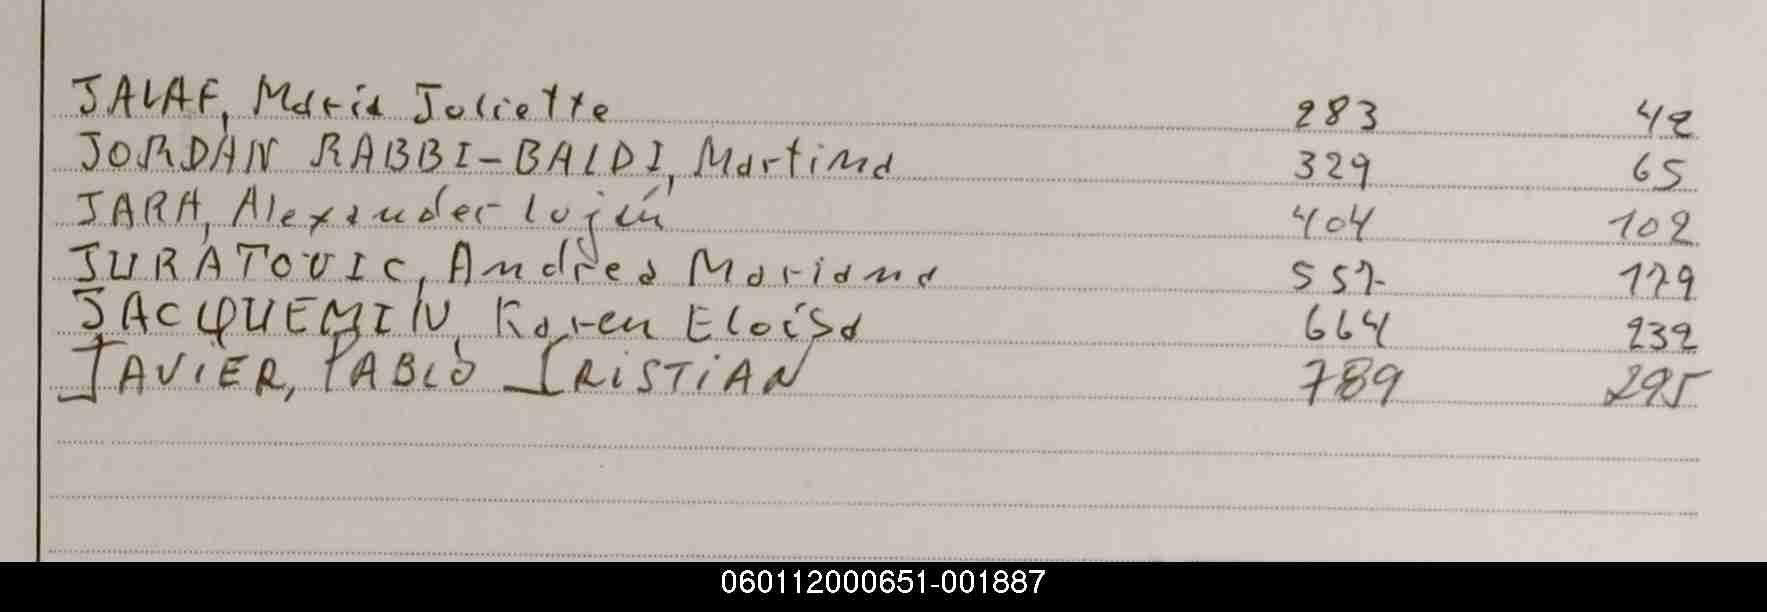 JALAF, Maria Juliette 283 42
JORDAN RABBI-BALDI, Martina 329 65
JARA, Alexander Luján 404 102
JURATOVIC, Andrea Mariana 557 179
JACQUEMIN, Karen Eloisa 664 232
JAVIER, PABLO IRISTIAN 789 295
060112000651-001887